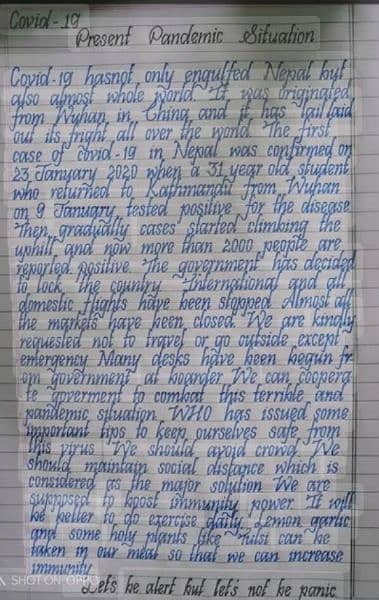 Covid-19
Present Pandemic Situation
Covid-19 hasnot only engulfed Nepal but
also almost whole world. It was originated
from Wuhan in China and it has tail laid
out its fright all over the world. The first
case of covid-19 in Nepal was confirmed on
23 January 2020 when a 31 year old student
who returned to Kathmandu from Wuhan
on 9 January tested positive for the disease.
Then gradually cases started climbing the
uphill, and now more than 2000 people are
reported positive. The government has decided
to lock the country. International and all
domestic flights have been stopped. Almost all
the markets have been closed. We are kindly
requested not to travel or go outside except
emergency Many desks have been begun fr
om government at boarder. We can coopera-
te goverment to combat this terrible and
pandemic situation. WHO has issued some
important tips to keep ourselves safe from
this virus. We should avoid crowd. We
should maintain social distance which is
considered as the major solution We are
supposed to boost immunity power. It will
be better to do exercise daily. Lemon garlic
and some holy plants like Tulsi can be
taken in our meal so that we can increase
immunity.
Let's be alert but let's not be panic
SHOT ON OPPO